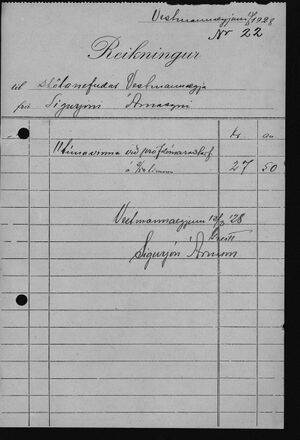 Vestmannaeyjum 1928
Nr 22
Reikningur
til skólanefndar Vestmannaeyja
frá Sigurjóni Árnasyni
kr. au
Tímavinna við prófdómarastörf
á kr. 27 50
Vestmannaeyjum 10/3 '28
Greitt
Sigurjón Árnason